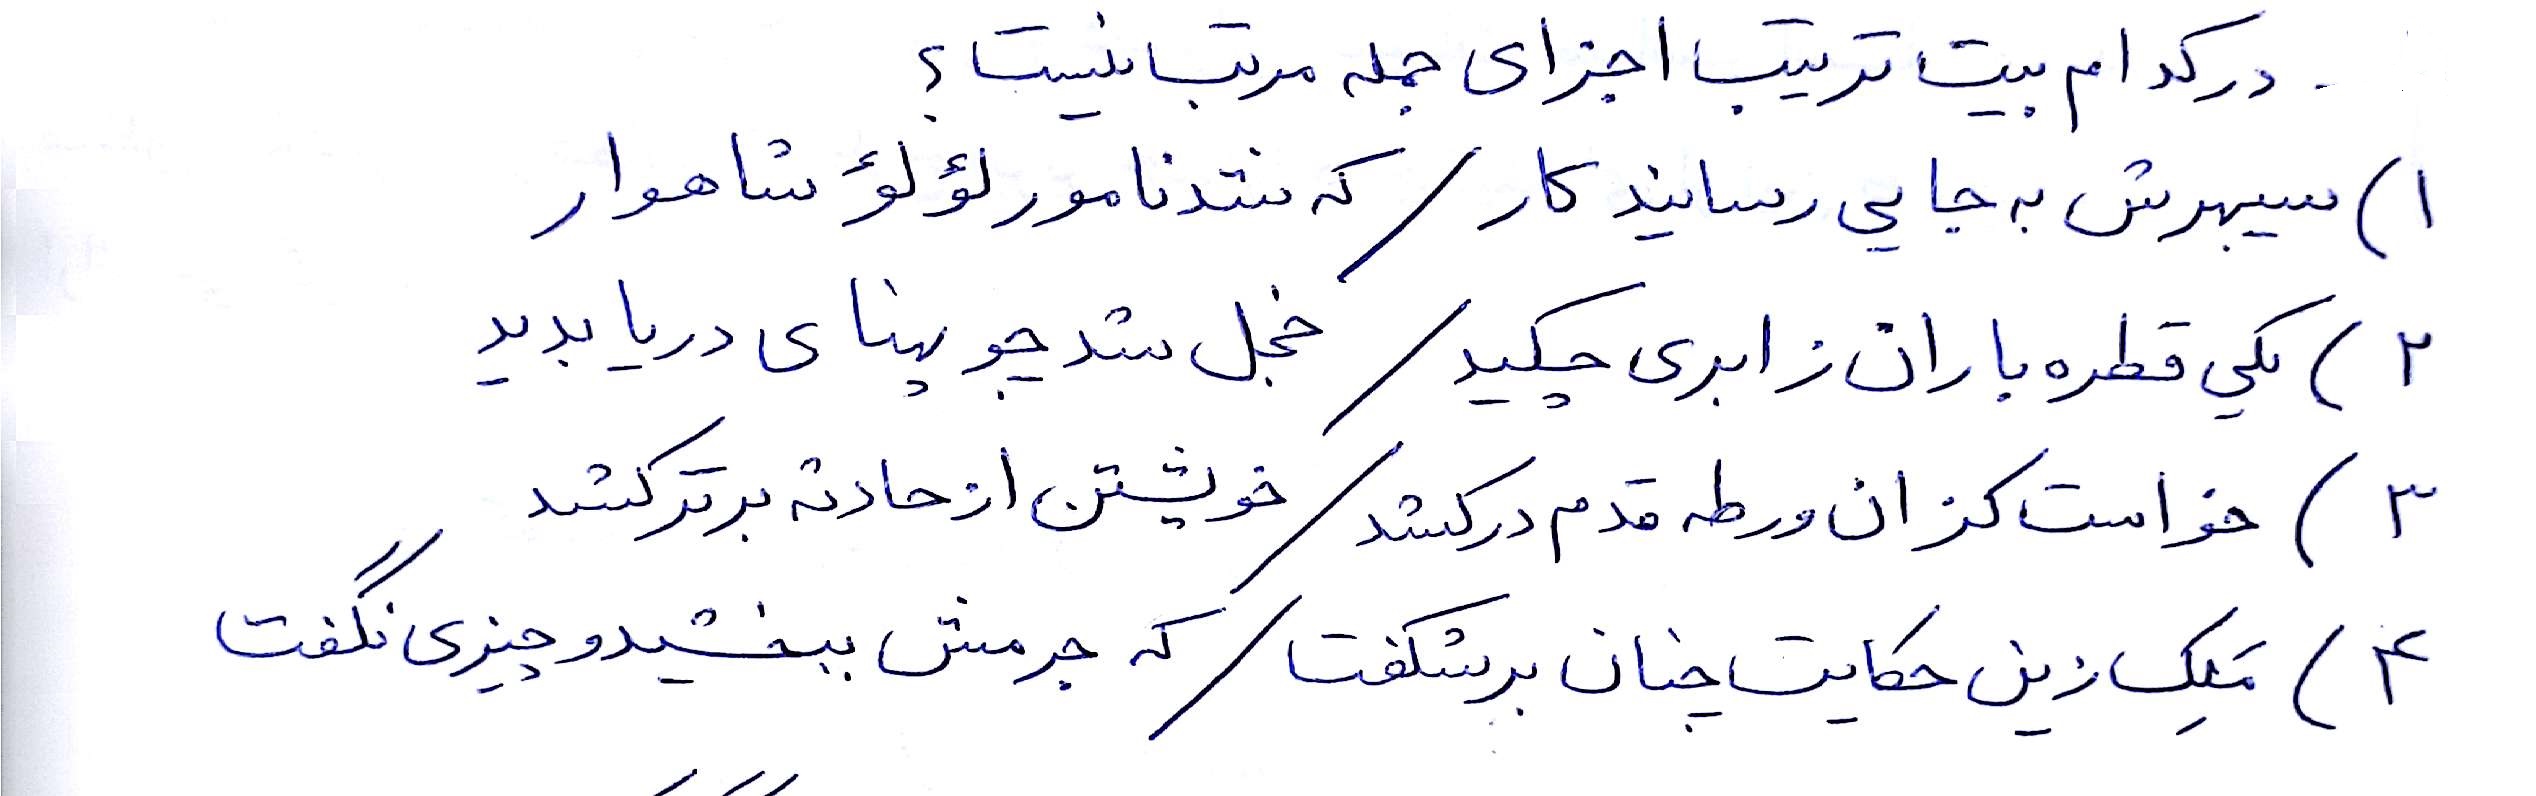 . در کدام بیت ترتیب اجزای جمله مرتب نیست؟
۱) سپهرش به جایی رسانید کار / که شد نامور لؤلؤ شاهوار
۲) یکی قطره باران ز ابری چکید / خجل شد چو پهنای دریا بدید
۳) خواست کزان ورطه قدم درکشد / خویشتن از حادثه برتر کشد
۴) مَلِک زین حکایت چنان برشکفت / که جرمش ببخشید و چیزی نگفت